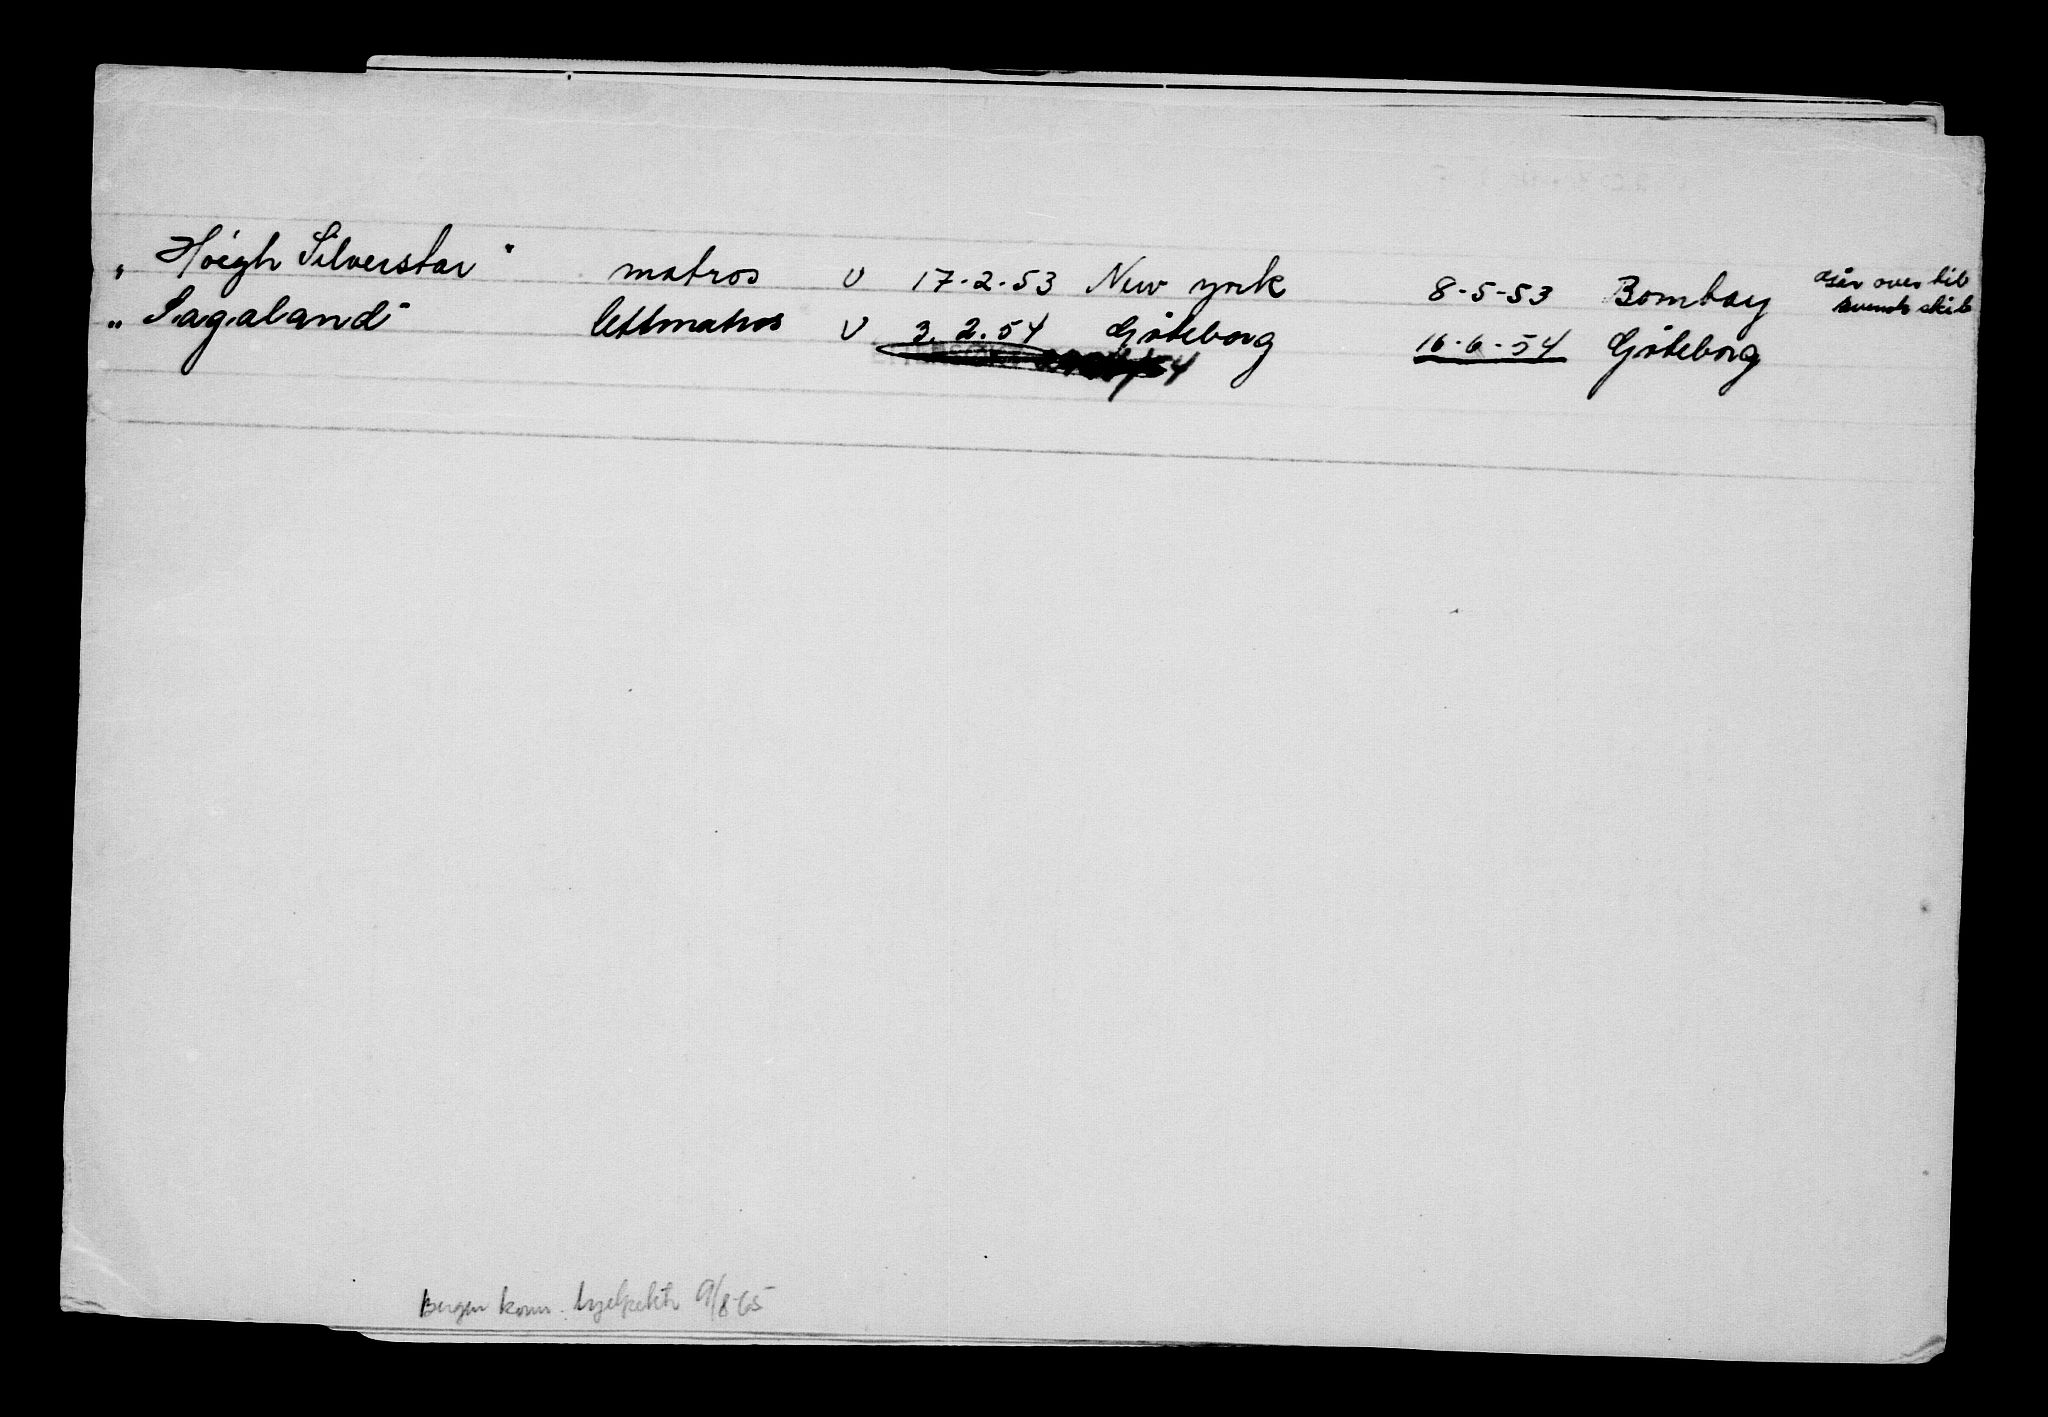 "Höegh Silverstar" matros U 17-2-53 New york 8-5-53 Bombay går over til svensk skib
"Sagaland" lettmatros U 3.2.54 Göteborg 16-6-54 Göteborg
Bergen komm. 9/8-65